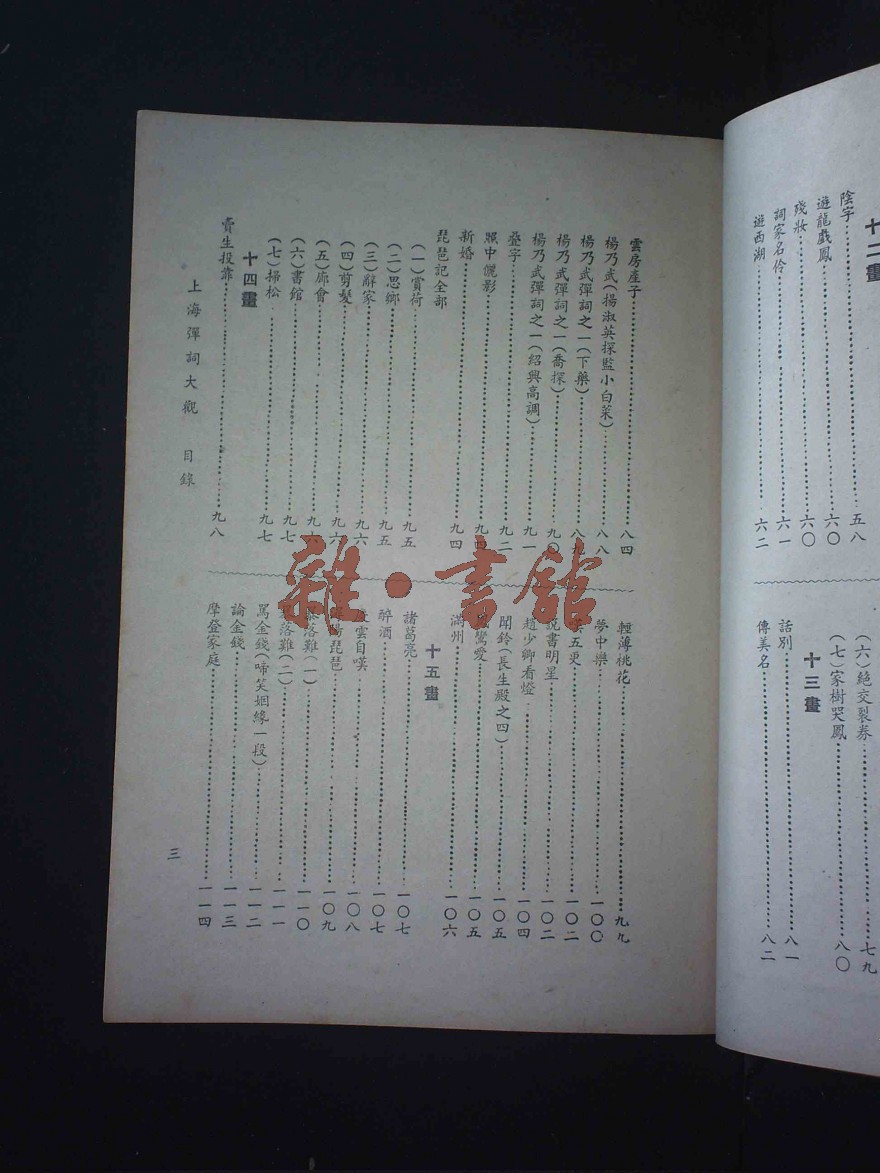 十二畫
陰字……五八
遊龍戲鳳……六〇
殘妝……六〇
詞家名伶……六一
遊西湖……六二
(六)絕交裂券……七九
(七)家樹哭鳳……八〇
十三畫
話別……八一
傳美名……八二
雲房產子……八四
楊乃武(楊淑英探監小白菜)……八八
楊乃武彈詞之一(下藥)……八九
楊乃武彈詞之一(喬探)……九〇
楊乃武彈詞之一(紹興高調)……九一
疊字……九二
照中儷影……九四
新婚……九四
琵琶記全部
(一)賞荷……九五
(二)思鄉……九五
(三)辭家……九六
(四)剪髮……九六
(五)廊會……九六
(六)書館……九七
(七)掃松……九七
十四畫
賣生投靠……九八
輕薄桃花……九九
夢中樂……一〇〇
五更……一〇二
說書明星……一〇二
趙少卿看燈……一〇四
聞鈴(長生殿之四)……一〇五
鸞愛……一〇五
滿州……一〇六
十五畫
諸葛亮……一〇七
醉酒……一〇七
雲自嘆……一〇八
陽琵琶……一〇九
落難(一)……一一〇
落難(二)……一一一
罵金錢(啼笑姻緣一段)……一一二
論金錢……一一三
摩登家庭……一一四
上海彈詞大觀 目錄
三
雜·書館